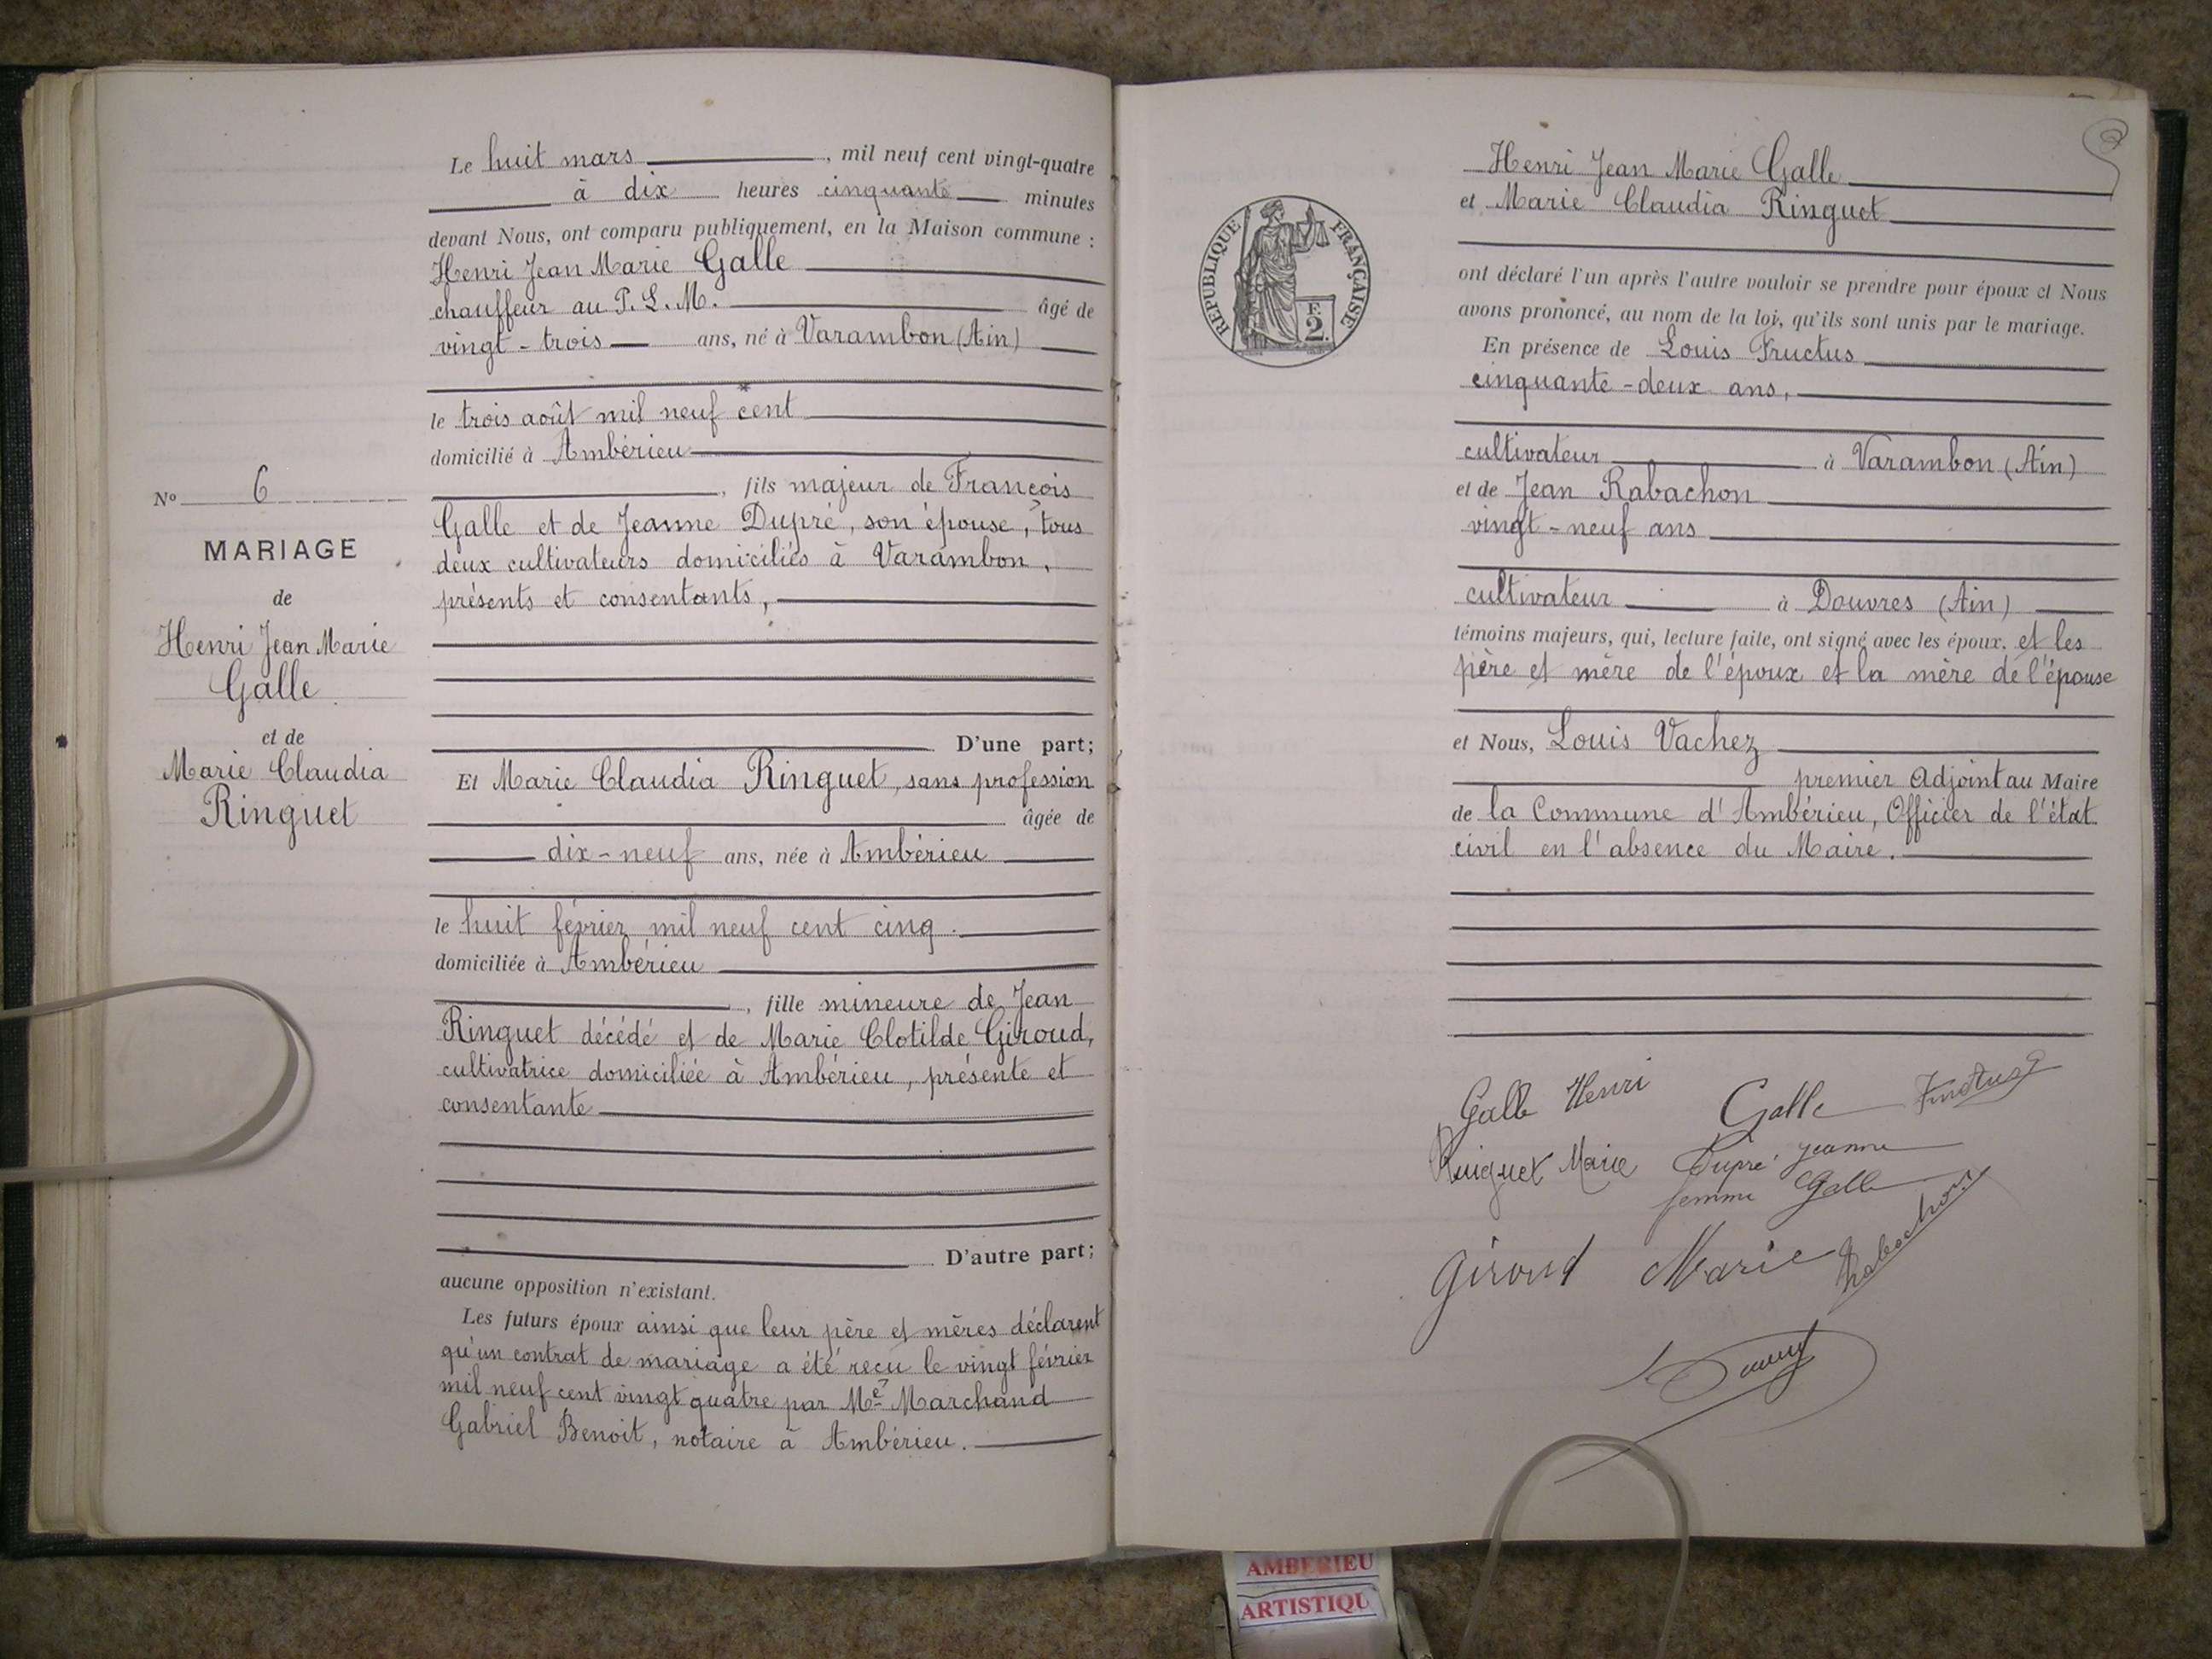 Le huit mars, mil neuf cent vingt-quatre
à dix heures cinquante minutes
devant Nous, ont comparu publiquement, en la Maison commune :
Henri Jean Marie Galle
chauffeur au P. L. M. âgé de
vingt-trois ans, né à Varambon (Ain)
le trois août mil neuf cent
domicilié à Ambérieu
, fils majeur de François
Galle et de Jeanne Dupré, son épouse, tous
deux cultivateurs domiciliés à Varambon,
présents et consentants,
D'une part;
Et Marie Claudia Ringuet, sans profession
âgée de
dix-neuf ans, née à Ambérieu
le huit février mil neuf cent cinq.
domiciliée à Ambérieu
, fille mineure de Jean
Ringuet décédé et de Marie Clotilde Giroud,
cultivatrice domiciliée à Ambérieu, présente et
consentante
D'autre part;
aucune opposition n'existant.
Les futurs époux ainsi que leur père et mères déclarent
qu'un contrat de mariage a été reçu le vingt février
mil neuf cent vingt quatre par Me Marchand
Gabriel Benoit, notaire à Ambérieu.
No 6
MARIAGE
de
Henri Jean Marie
Galle
et de
Marie Claudia
Ringuet
RÉPUBLIQUE FRANÇAISE
F.
2.
Henri Jean Marie Galle
et Marie Claudia Ringuet
ont déclaré l'un après l'autre vouloir se prendre pour époux et Nous
avons prononcé, au nom de la loi, qu'ils sont unis par le mariage.
En présence de Louis Fructus
cinquante-deux ans,
cultivateur à Varambon (Ain)
et de Jean Rabachon
vingt-neuf ans
cultivateur à Douvres (Ain)
témoins majeurs, qui, lecture faite, ont signé avec les époux, et les
père et mère de l'époux et la mère de l'épouse
et Nous, Louis Vachez
premier Adjoint au Maire
de la Commune d'Ambérieu, Officier de l'état
civil en l'absence du Maire.
Galle Henri Galle Fructus
Ringuet Marie Dupré Jeanne
femme Galle
Giroud Marie Rabachon
AMBERIEU
ARTISTIQU